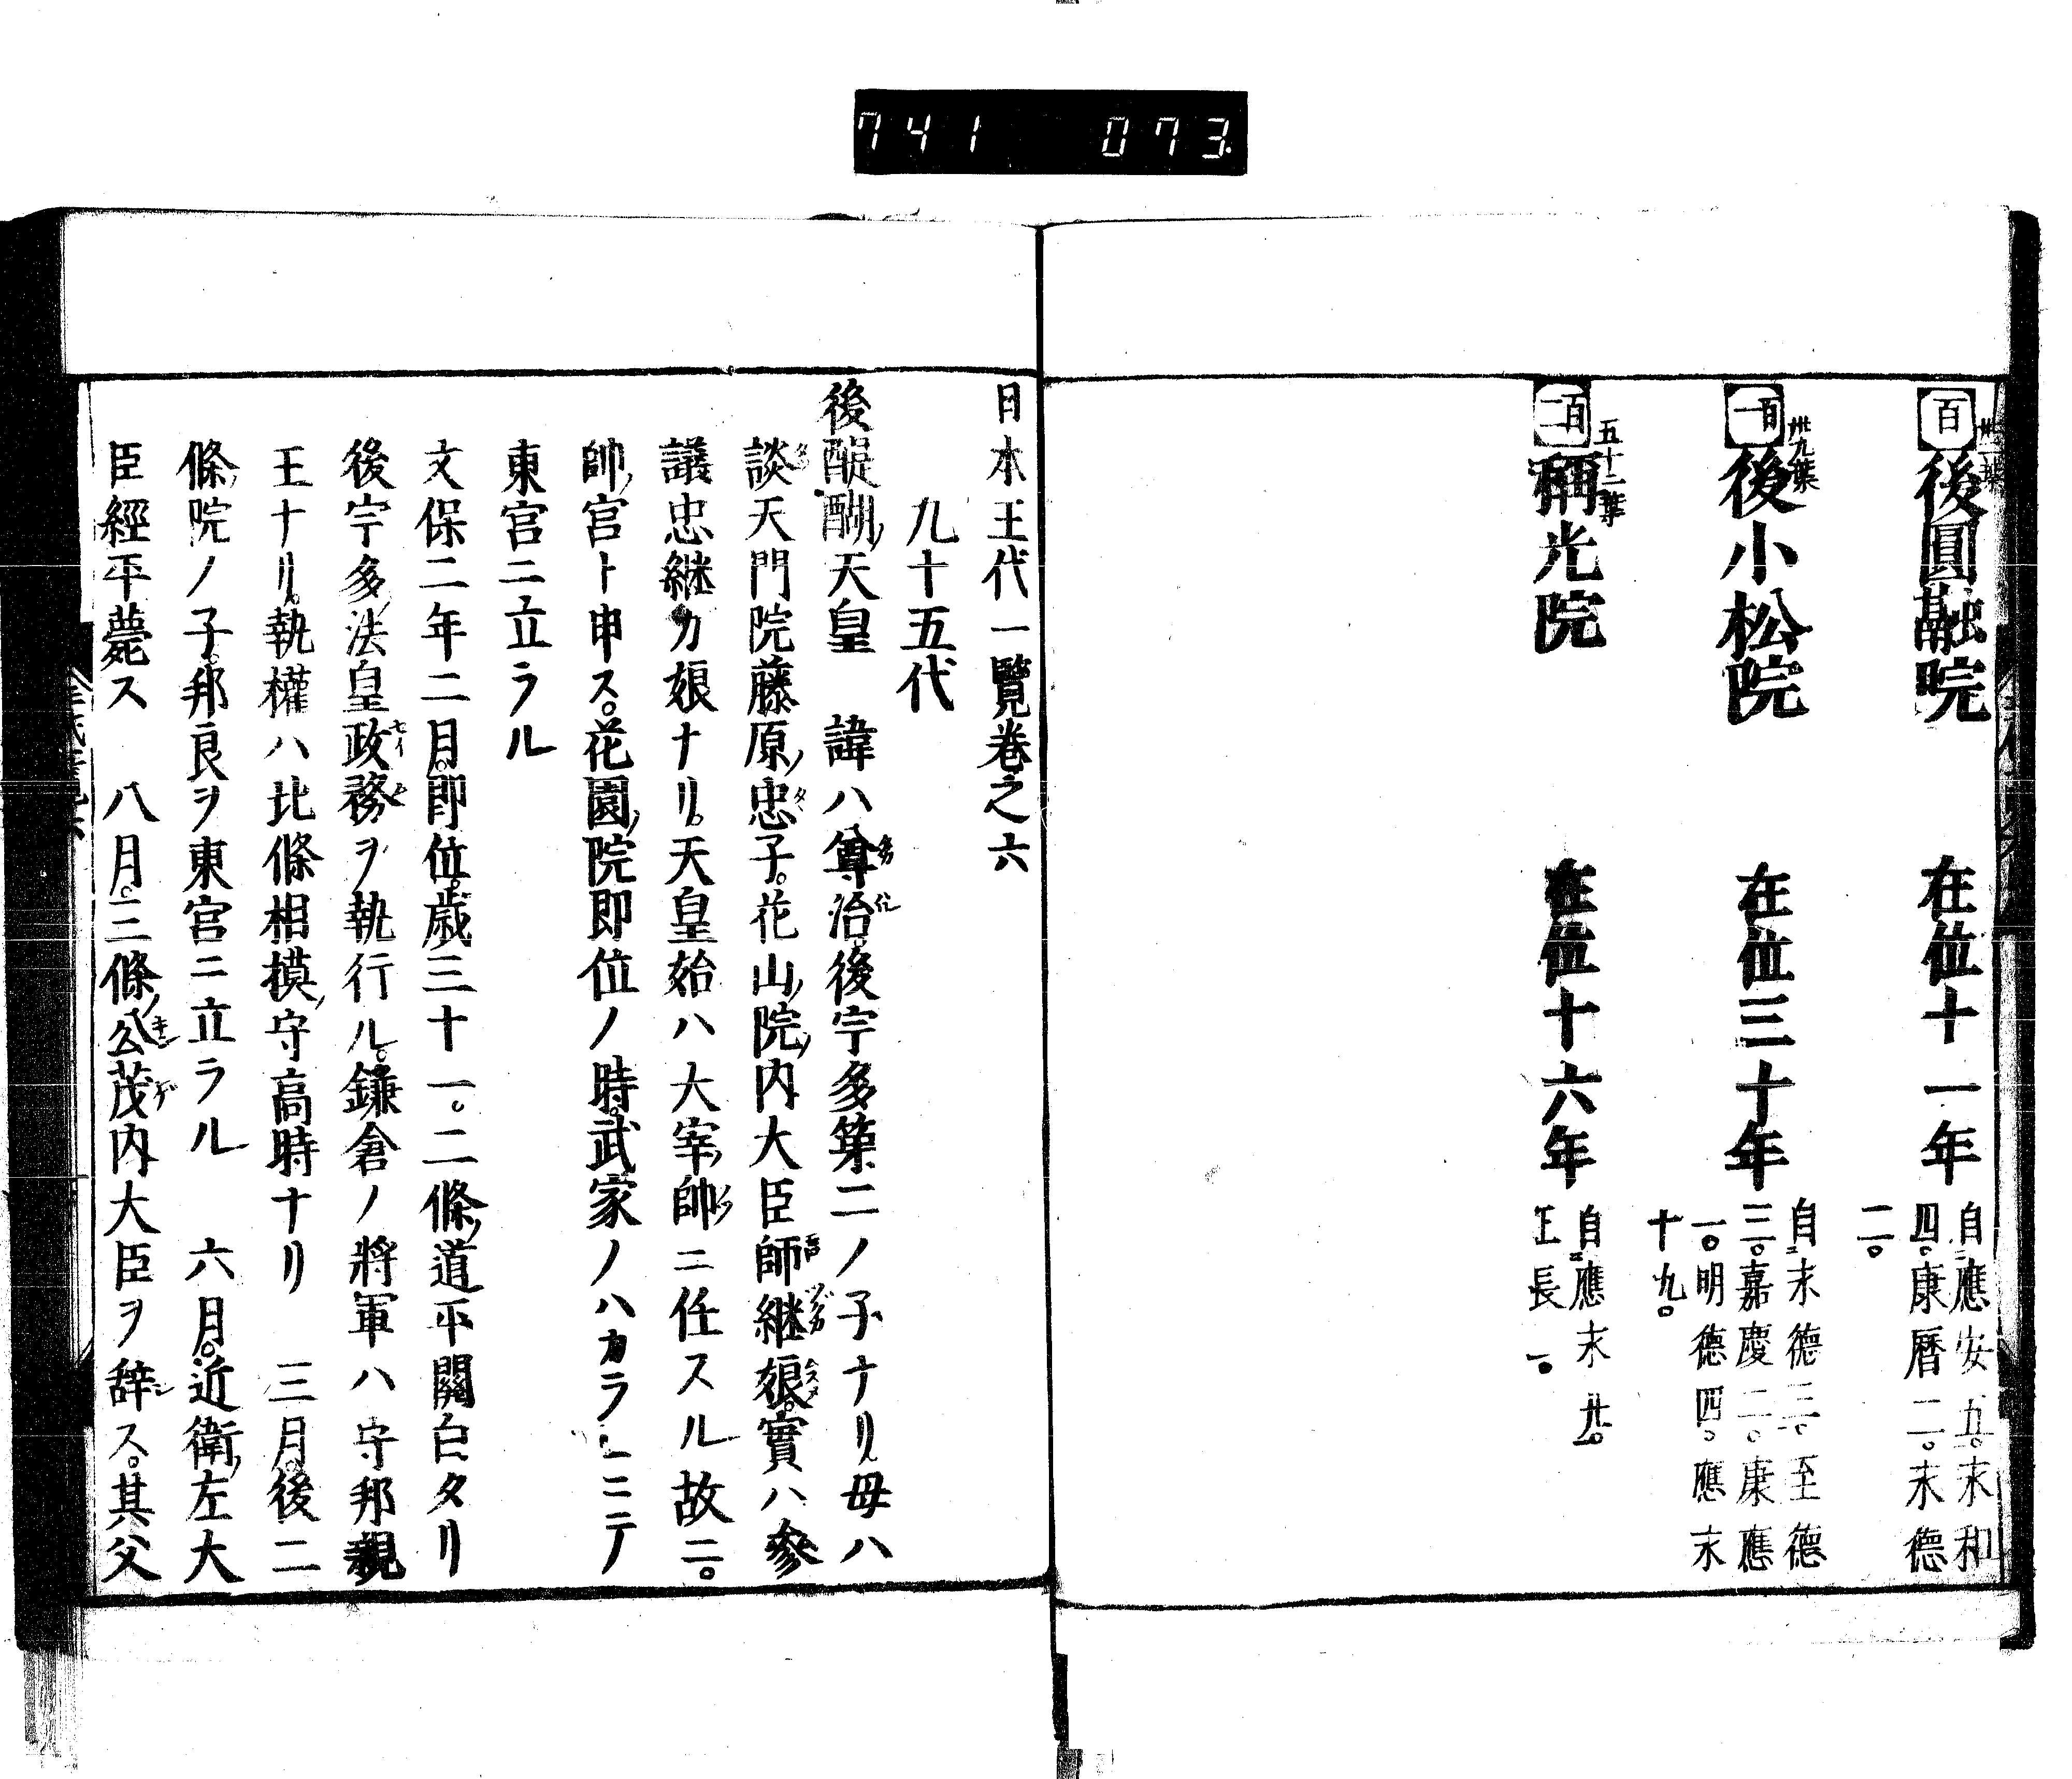 741 073
百 後圓融院 在位十一年 自應安五。末和
四。康暦二。末德
二。
卅九葉
百一 後小松院 在位三十年 自末德三。至德
三。嘉慶二。康應
一。明德四。應末
十九。
五十二葉
百二 稱光院 在位十六年 自應末廿。
正長一。
日本王代一覽卷之六
九十五代
後醍醐天皇 諱ハ尊治。後宇多第二ノ子ナリ。母ハ
談天門院藤原ノ忠子。花山ノ院ノ内大臣師継娘。實ハ參
議忠継カ娘ナリ。天皇始ハ大宰ノ帥ニ任スル故ニ。
帥ノ宮ト申ス。花園ノ院即位ノ時。武家ノハカラヒニテ
東宮ニ立ラル
文保二年二月。即位。歳三十一。二條ノ道平關白タリ
後宇多ノ法皇政務ヲ執行ル。鎌倉ノ將軍ハ守邦親
王ナリ。執權ハ北條相摸ノ守高時ナリ 三月。後二
條ノ院ノ子。邦良ヲ東宮ニ立ラル 六月。近衛ノ左大
臣經平薨ス 八月。三條ノ公茂内大臣ヲ辞ス。其父